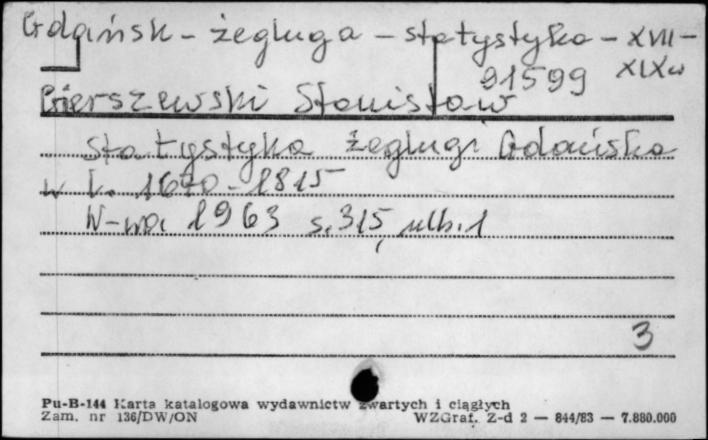 Gdańsk - żegluga - statystyka - XVII -
XIX w
91599
Gierszewski Stanisław
Statystyka żeglugi Gdańska
w l. 1670-1815
W-wa 1963 s. 315, nlb. 1
3
Pu-B-144 Karta katalogowa wydawnictw zwartych i ciągłych
Zam. nr 136/DW/ON WZGraf. Z-d 2 — 844/83 — 7.880.000